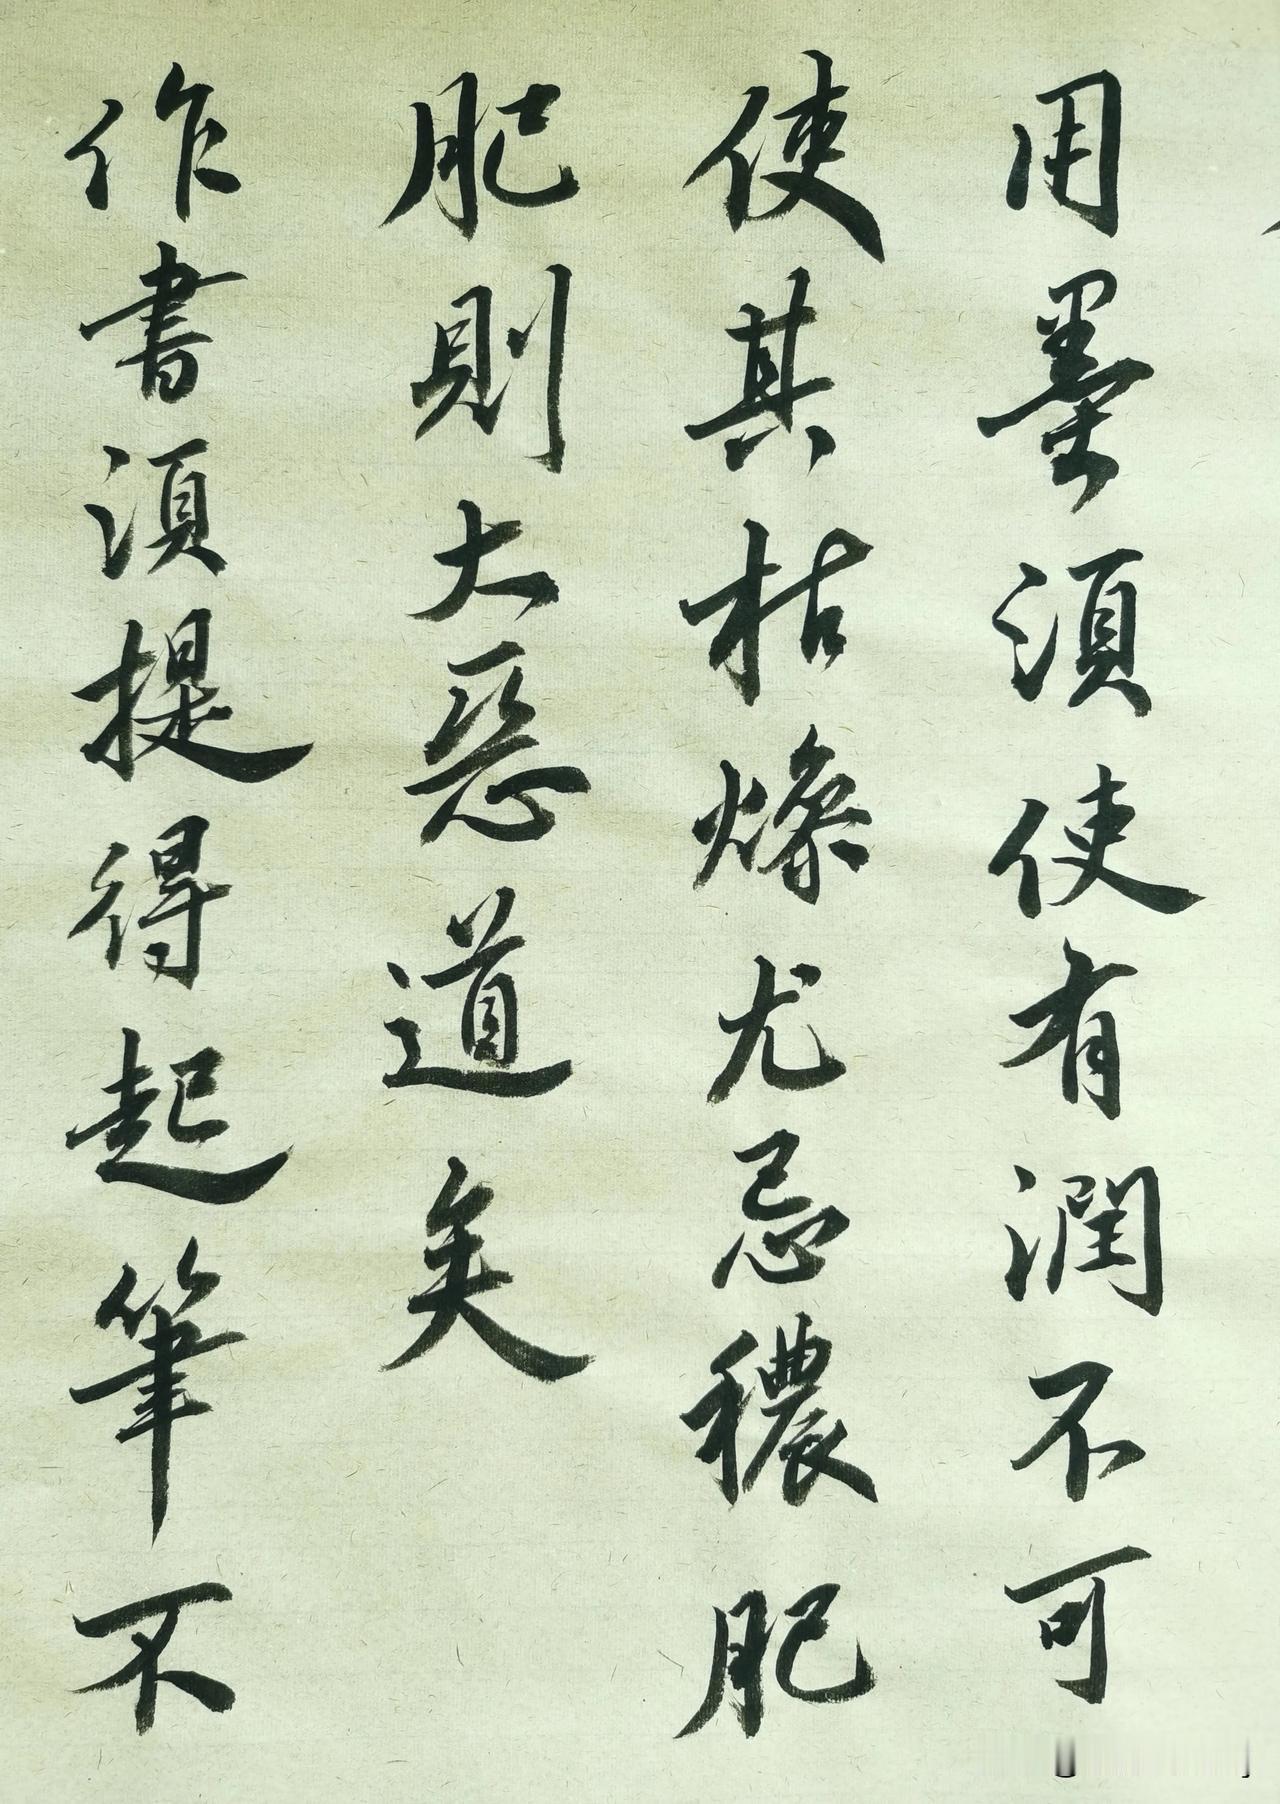 用墨須使有潤不可
使其枯燥尤忌穠肥
肥則大惡道矣
作書須提得起筆不